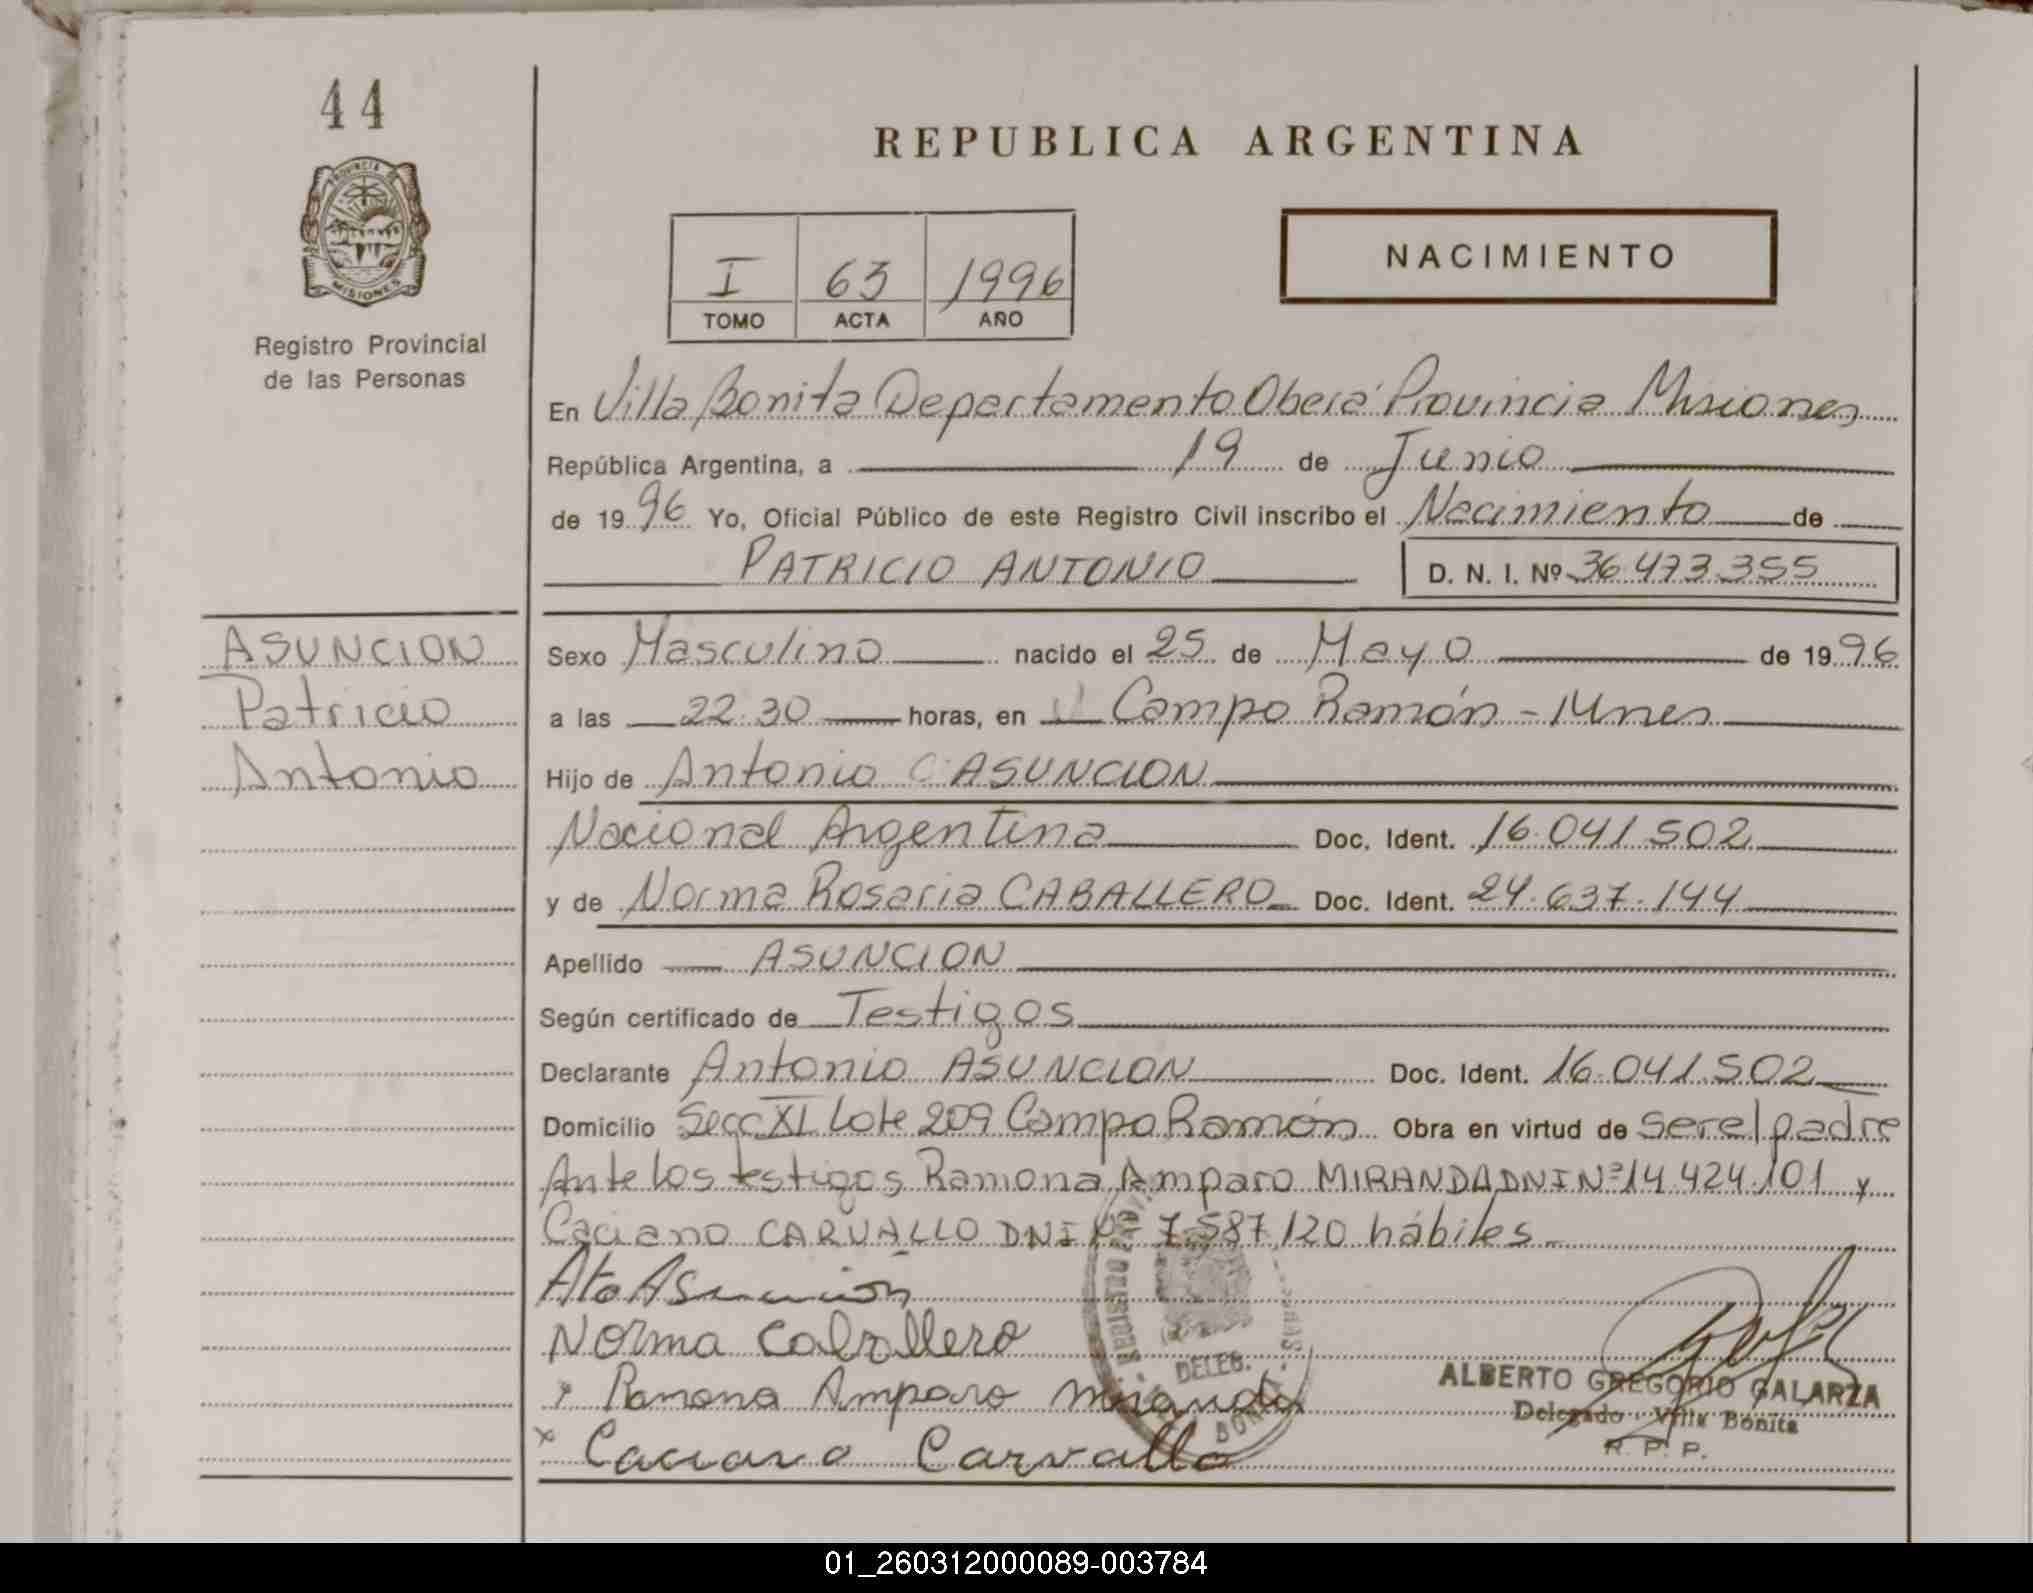 44
REPUBLICA ARGENTINA
PROVINCIA DE
MISIONES
Registro Provincial
de las Personas
I 63 1996
TOMO ACTA AÑO
NACIMIENTO
En Villa Bonita Departamento Oberá Provincia Misiones
República Argentina, a 19 de Junio
de 1996 Yo, Oficial Público de este Registro Civil inscribo el Nacimiento de
PATRICIO ANTONIO D. N. I. Nº 36.473.355
ASUNCION
Patricio
Antonio
Sexo Masculino nacido el 25 de Mayo de 1996
a las 22.30 horas, en Campo Ramón - Mnes
Hijo de Antonio ASUNCION
Nacional Argentina Doc. Ident. 16.041.502
y de Norma Rosaria CABALLERO Doc. Ident. 24.637.144
Apellido ASUNCION
Según certificado de Testigos
Declarante Antonio ASUNCION Doc. Ident. 16.041.502
Domicilio Secc XI Lote 209 Campo Ramón Obra en virtud de ser el padre
Ante los testigos Ramona Amparo MIRANDA DNI Nº 14.424.101 y
Caciano CARVALLO DNI Nº 7.587.120 hábiles
Ato Asunción
Norma Caballero
x Ramona Amparo Miranda
x Caciano Carvallo
DELEG.
BONITA
ALBERTO GREGORIO GALARZA
Delegado Villa Bonita
R. P. P.
01_260312000089-003784